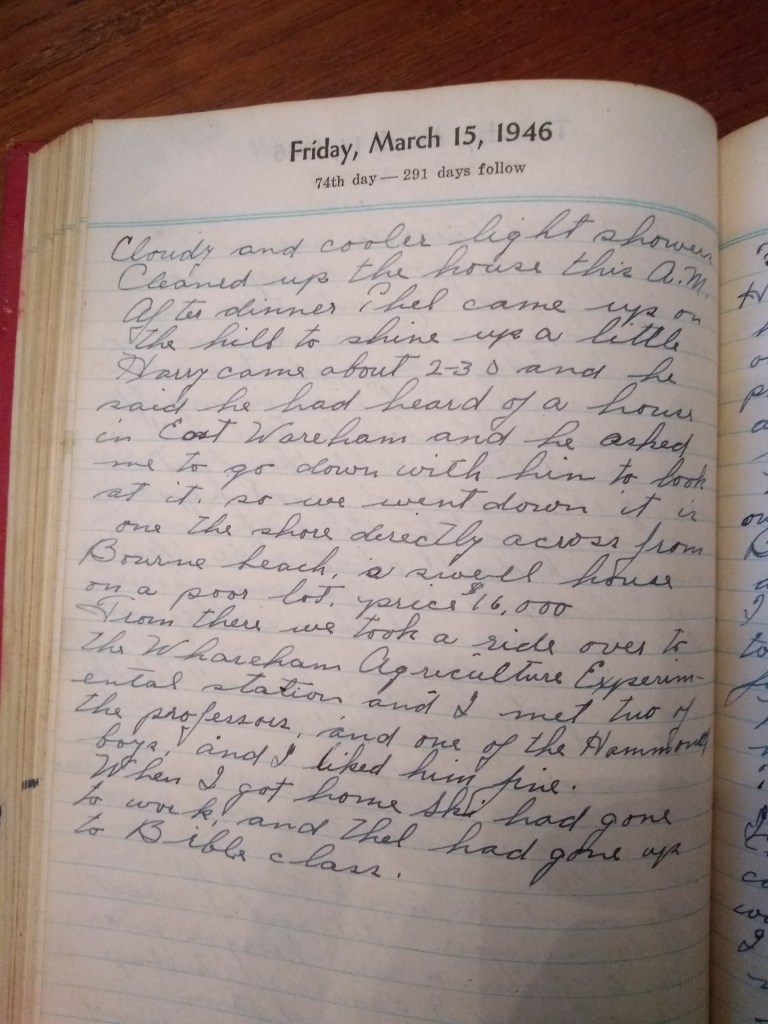 Friday, March 15, 1946
74th day — 291 days follow
Cloudy and cooler light showers
Cleaned up the house this A.M.
After dinner Thel came up on
the hill to shine up a little
Harry came about 2-30 and he
said he had heard of a house
in East Wareham and he asked
me to go down with him to look
at it. so we went down it is
one the shore directly across from
Bourne beach, a swell house
on a poor lot. price $16,000
From there we took a ride over to
the Whareham Agriculture Experim-
ental station and I met two of
the professors, and one of the Hammond
boys, and I liked him fine.
When I got home Ski had gone
to work, and Thel had gone up
to Bible class.